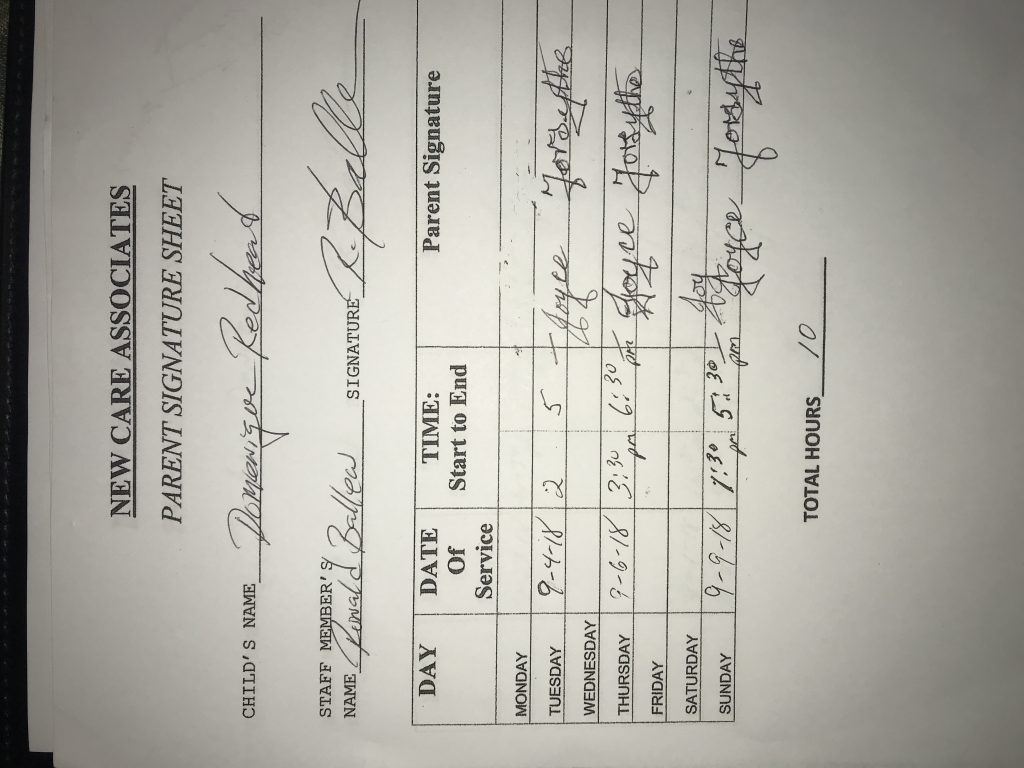 NEW CARE ASSOCIATES
PARENT SIGNATURE SHEET
CHILD'S NAME Domanique Redhead
STAFF MEMBER'S
NAME SIGNATURE R. Balle
DAY DATE Of Service TIME: Start to End Parent Signature
MONDAY
TUESDAY 9-4-18 2 5 — Joyce Forsythe
WEDNESDAY
THURSDAY 9-6-18 3:30 pm 6:30 pm — Joyce Forsythe
FRIDAY
SATURDAY Joy
SUNDAY 9-9-18 1:30 pm 5:30 pm — Joyce Forsythe
TOTAL HOURS 10